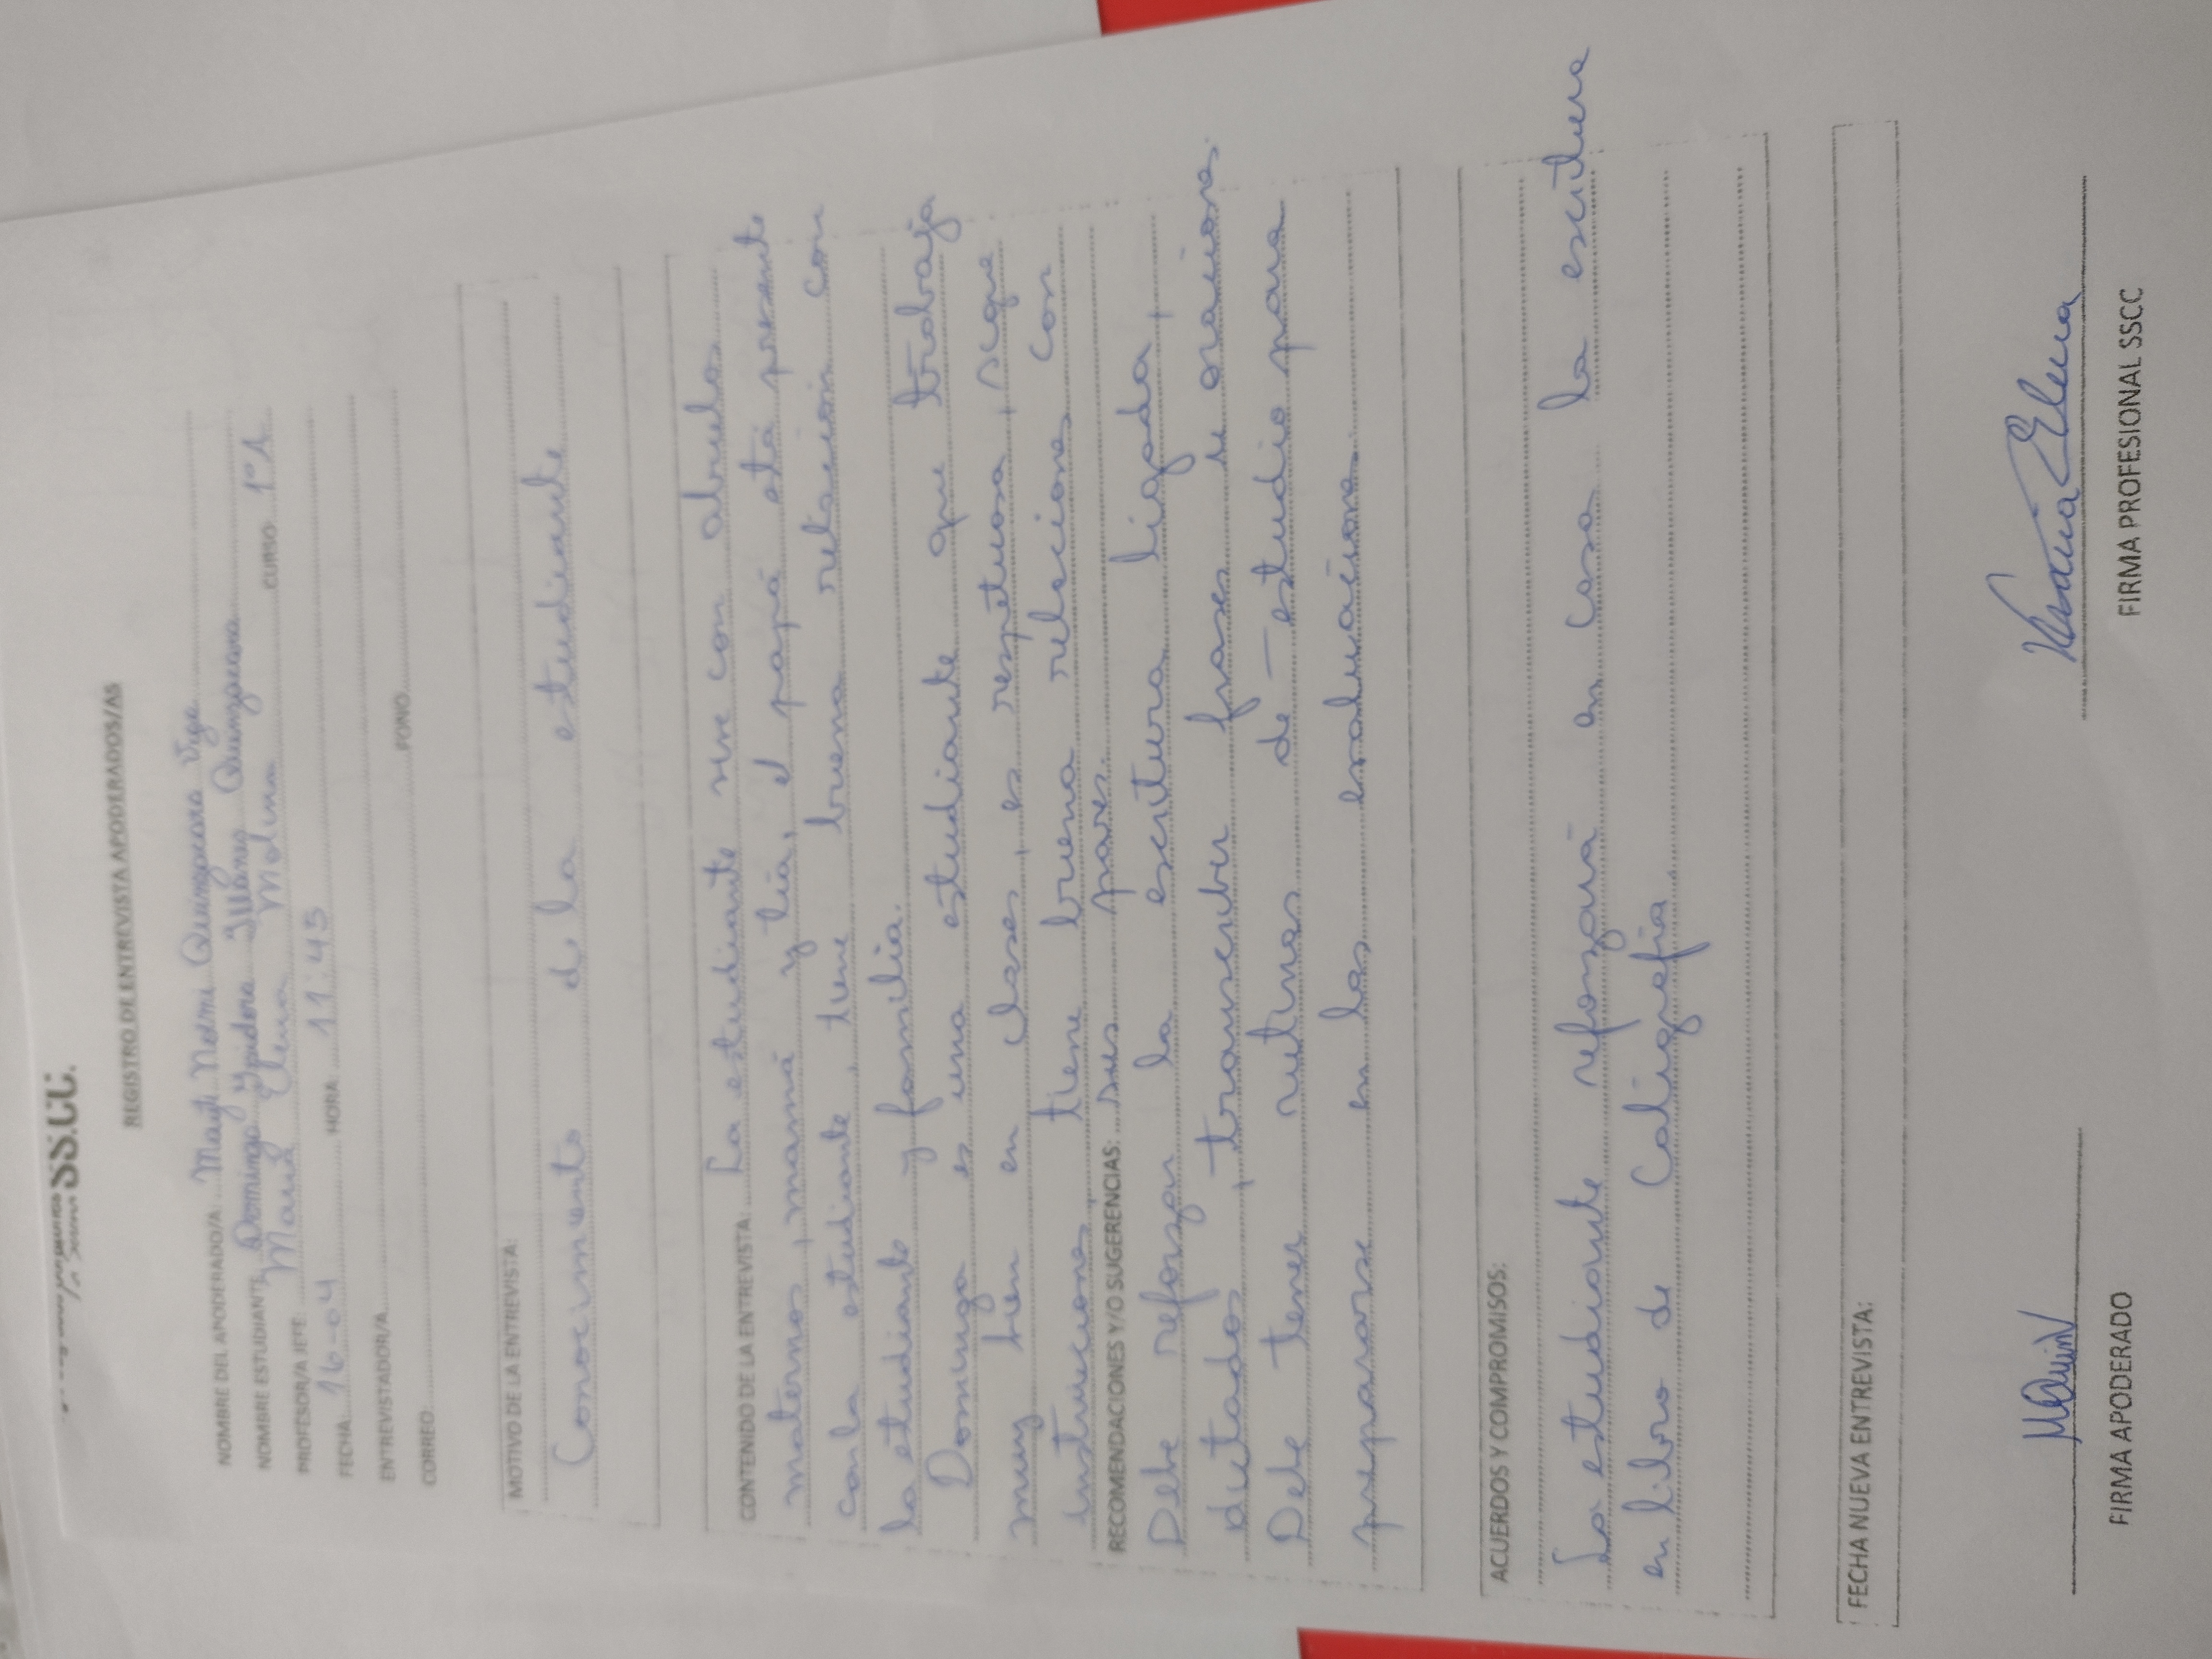 SS.CC.
REGISTRO DE ENTREVISTA APODERADOS/AS
NOMBRE DEL APODERADO/A: Magly Noemi Quinzacara Vega
NOMBRE ESTUDIANTE Dominga Ysidora Quinzacara CURSO 1°A
PROFESOR/A JEFE: María Elena Molina
FECHA 16-04 HORA 11:45
ENTREVISTADOR/A
CORREO FONO
MOTIVO DE LA ENTREVISTA:
Conocimiento de la estudiante
CONTENIDO DE LA ENTREVISTA: La estudiante vive con abuelos
maternos, mamá y tía, el papá está presente
con la estudiante, tiene buena relación con
la estudiante y familia.
Dominga es una estudiante que trabaja
muy bien en clases, es respetuosa, sigue
instrucciones, tiene buena relaciones con
RECOMENDACIONES Y/O SUGERENCIAS: sus pares.
Debe reforzar la escritura ligada,
dictados, transcribir frases u oraciones.
Debe tener rutinas de estudio para
prepararse en las evaluaciones.
ACUERDOS Y COMPROMISOS:
La estudiante reforzará en casa la escritura
en libro de Caligrafía.
FECHA NUEVA ENTREVISTA:
FIRMA APODERADO FIRMA PROFESIONAL SSCC